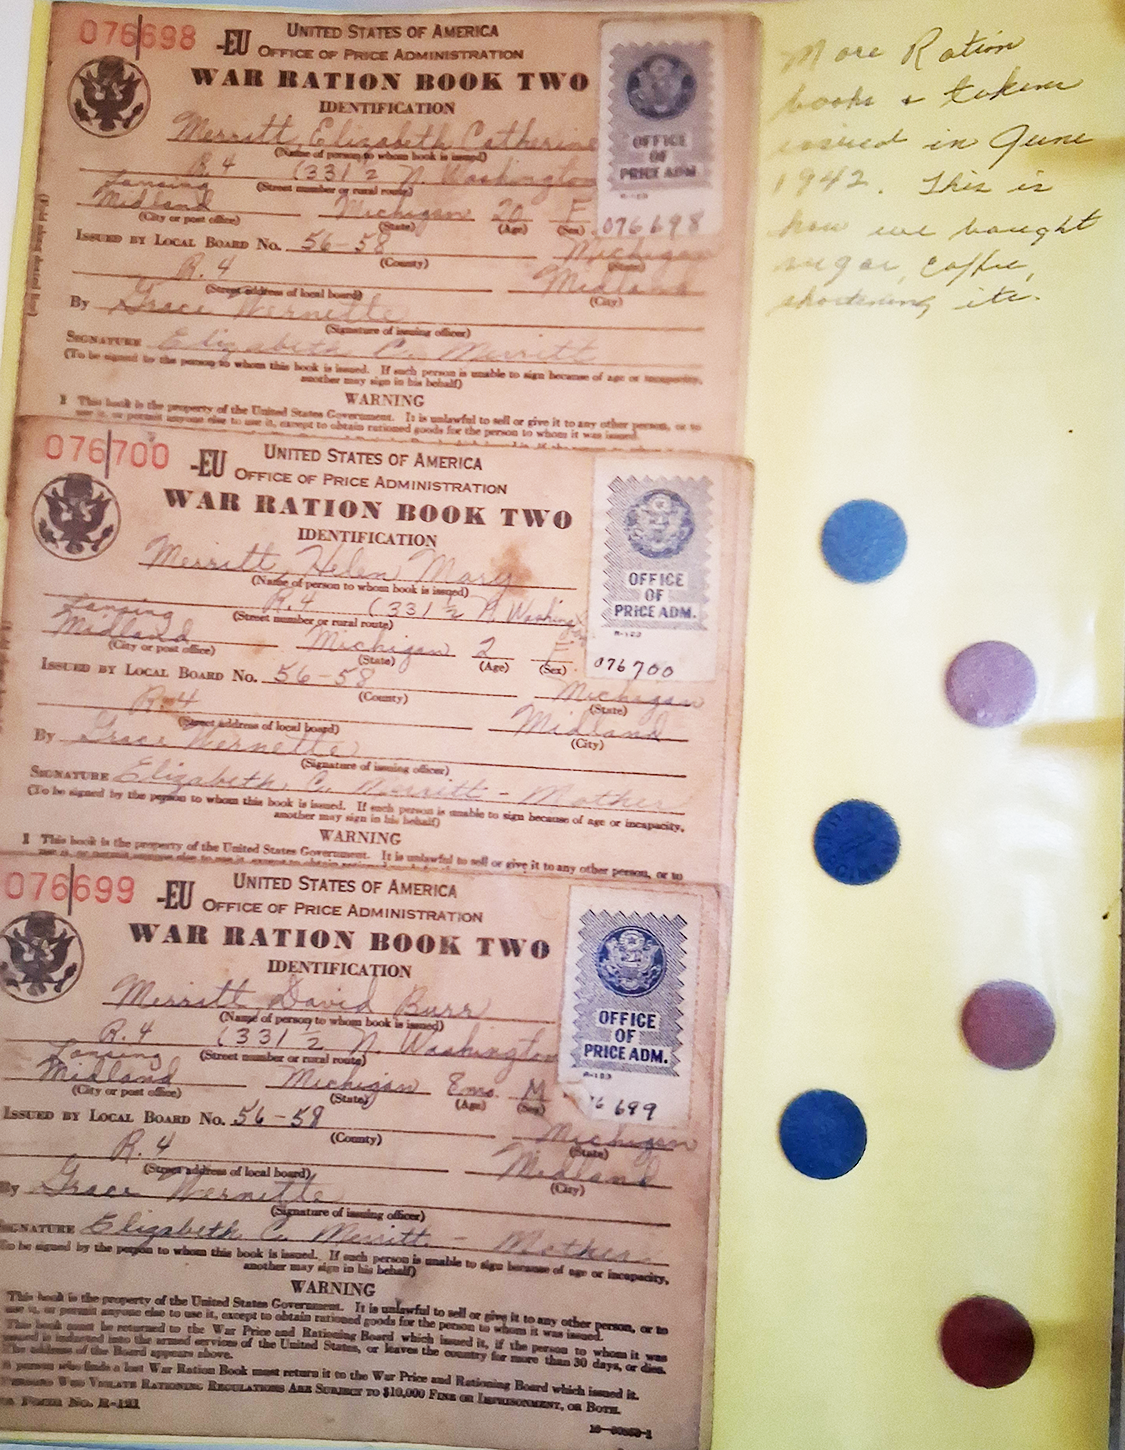 076698 -EU
UNITED STATES OF AMERICA
OFFICE OF PRICE ADMINISTRATION
WAR RATION BOOK TWO
IDENTIFICATION
Merritt, Elizabeth Catherine
(Name of person to whom book is issued)
R.4 (331 1/2 N. Washington
(Street number or rural route)
Lansing
Midland Michigan 20 F
(City or post office) (State) (Age) (Sex)
ISSUED BY LOCAL BOARD NO. 56-58 Michigan
(County) (State)
R.4 Midland
(Street address of local board) (City)
By Grace Wernette
(Signature of issuing officer)
SIGNATURE Elizabeth C. Merritt
(To be signed by the person to whom this book is issued. If such person is unable to sign because of age or incapacity,
another may sign in his behalf)
WARNING
1 This book is the property of the United States Government. It is unlawful to sell or give it to any other person, or to
use it, or permit anyone else to use it, except to obtain rationed goods for the person to whom it was issued.
OFFICE
OF
PRICE ADM.
R-123
076698
076700 -EU
UNITED STATES OF AMERICA
OFFICE OF PRICE ADMINISTRATION
WAR RATION BOOK TWO
IDENTIFICATION
Merritt, Helen Mary
(Name of person to whom book is issued)
R.4 (331 1/2 N. Washing
(Street number or rural route)
Lansing
Midland Michigan 2 F
(City or post office) (State) (Age) (Sex)
ISSUED BY LOCAL BOARD NO. 56-58 Michigan
(County) (State)
R.4 Midland
(Street address of local board) (City)
By Grace Wernette
(Signature of issuing officer)
SIGNATURE Elizabeth C. Merritt - Mother
(To be signed by the person to whom this book is issued. If such person is unable to sign because of age or incapacity,
another may sign in his behalf)
WARNING
1 This book is the property of the United States Government. It is unlawful to sell or give it to any other person, or to
OFFICE
OF
PRICE ADM.
R-123
076700
076699 -EU
UNITED STATES OF AMERICA
OFFICE OF PRICE ADMINISTRATION
WAR RATION BOOK TWO
IDENTIFICATION
Merritt, David Burr
(Name of person to whom book is issued)
R.4 (331 1/2 N. Washington
(Street number or rural route)
Lansing
Midland Michigan 8 mo. M
(City or post office) (State) (Age) (Sex)
ISSUED BY LOCAL BOARD NO. 56-58 Michigan
(County) (State)
R.4 Midland
(Street address of local board) (City)
By Grace Wernette
(Signature of issuing officer)
SIGNATURE Elizabeth C. Merritt - Mother
To be signed by the person to whom this book is issued. If such person is unable to sign because of age or incapacity,
another may sign in his behalf)
WARNING
This book is the property of the United States Government. It is unlawful to sell or give it to any other person, or to
use it, or permit anyone else to use it, except to obtain rationed goods for the person to whom it was issued.
This book must be returned to the War Price and Rationing Board which issued it, if the person to whom it was
issued is inducted into the armed services of the United States, or leaves the country for more than 30 days, or dies.
The address of the Board appears above.
A person who finds a lost War Ration Book must return it to the War Price and Rationing Board which issued it.
PERSONS WHO VIOLATE RATIONING REGULATIONS ARE SUBJECT TO $10,000 FINE OR IMPRISONMENT, OR BOTH.
Form No. R-121
OFFICE
OF
PRICE ADM.
R-123
6699
More Ration
books & tokens
issued in June
1942. This is
how we bought
sugar, coffee,
shortening etc.